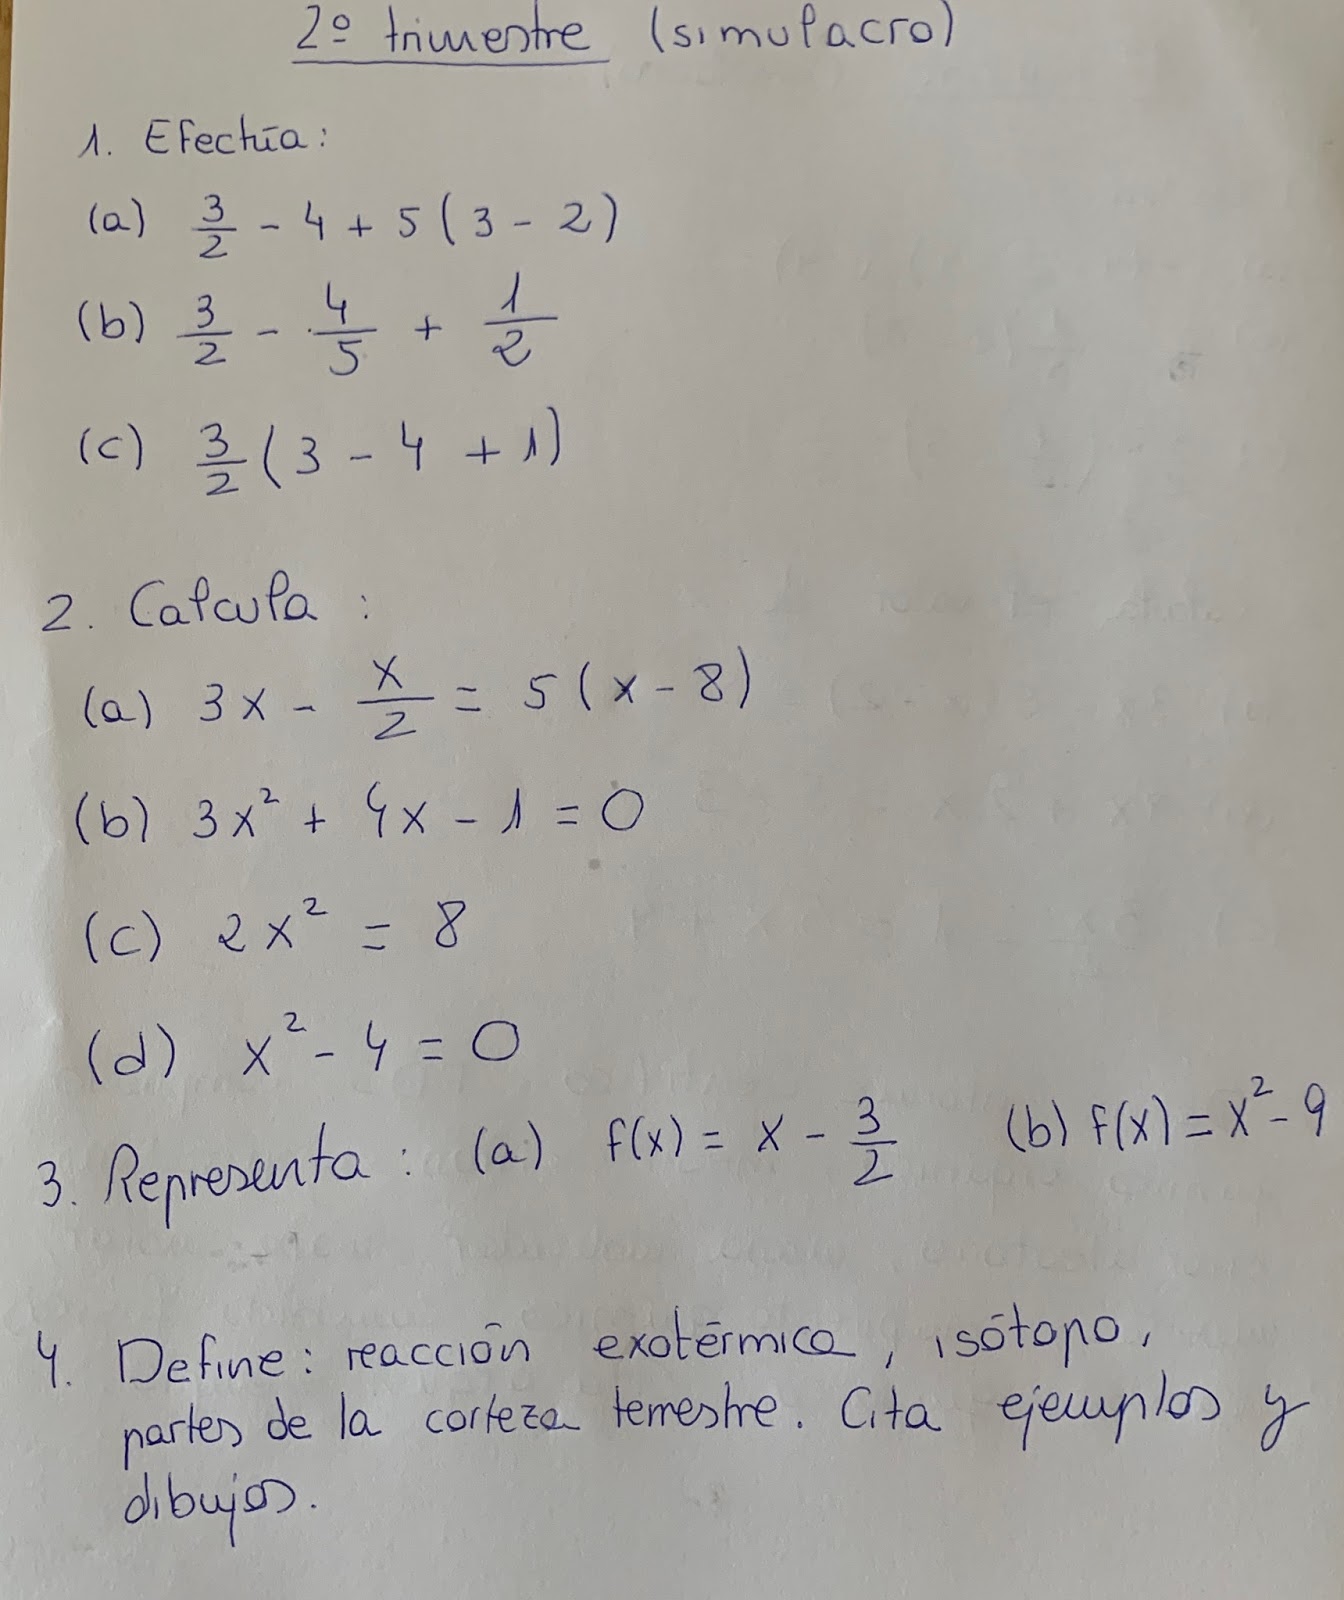 2º trimestre (simulacro)
1. Efectúa:
(a) 3/2 - 4 + 5 ( 3 - 2 )
(b) 3/2 - 4/5 + 1/2
(c) 3/2 ( 3 - 4 + 1 )
2. Calcula :
(a) 3x - x/2 = 5 ( x - 8 )
(b) 3x² + 4x - 1 = 0
(c) 2x² = 8
(d) x² - 4 = 0
3. Representa : (a) f(x) = x - 3/2 (b) f(x) = x² - 9
4. Define: reacción exotérmica, isótopo,
partes de la corteza terrestre. Cita ejemplos y
dibujos.